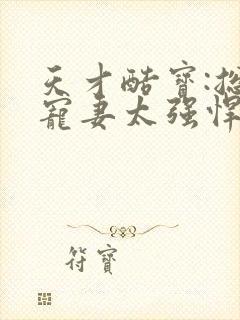 天才酷寶:捴
寵妻太强悍
符寶